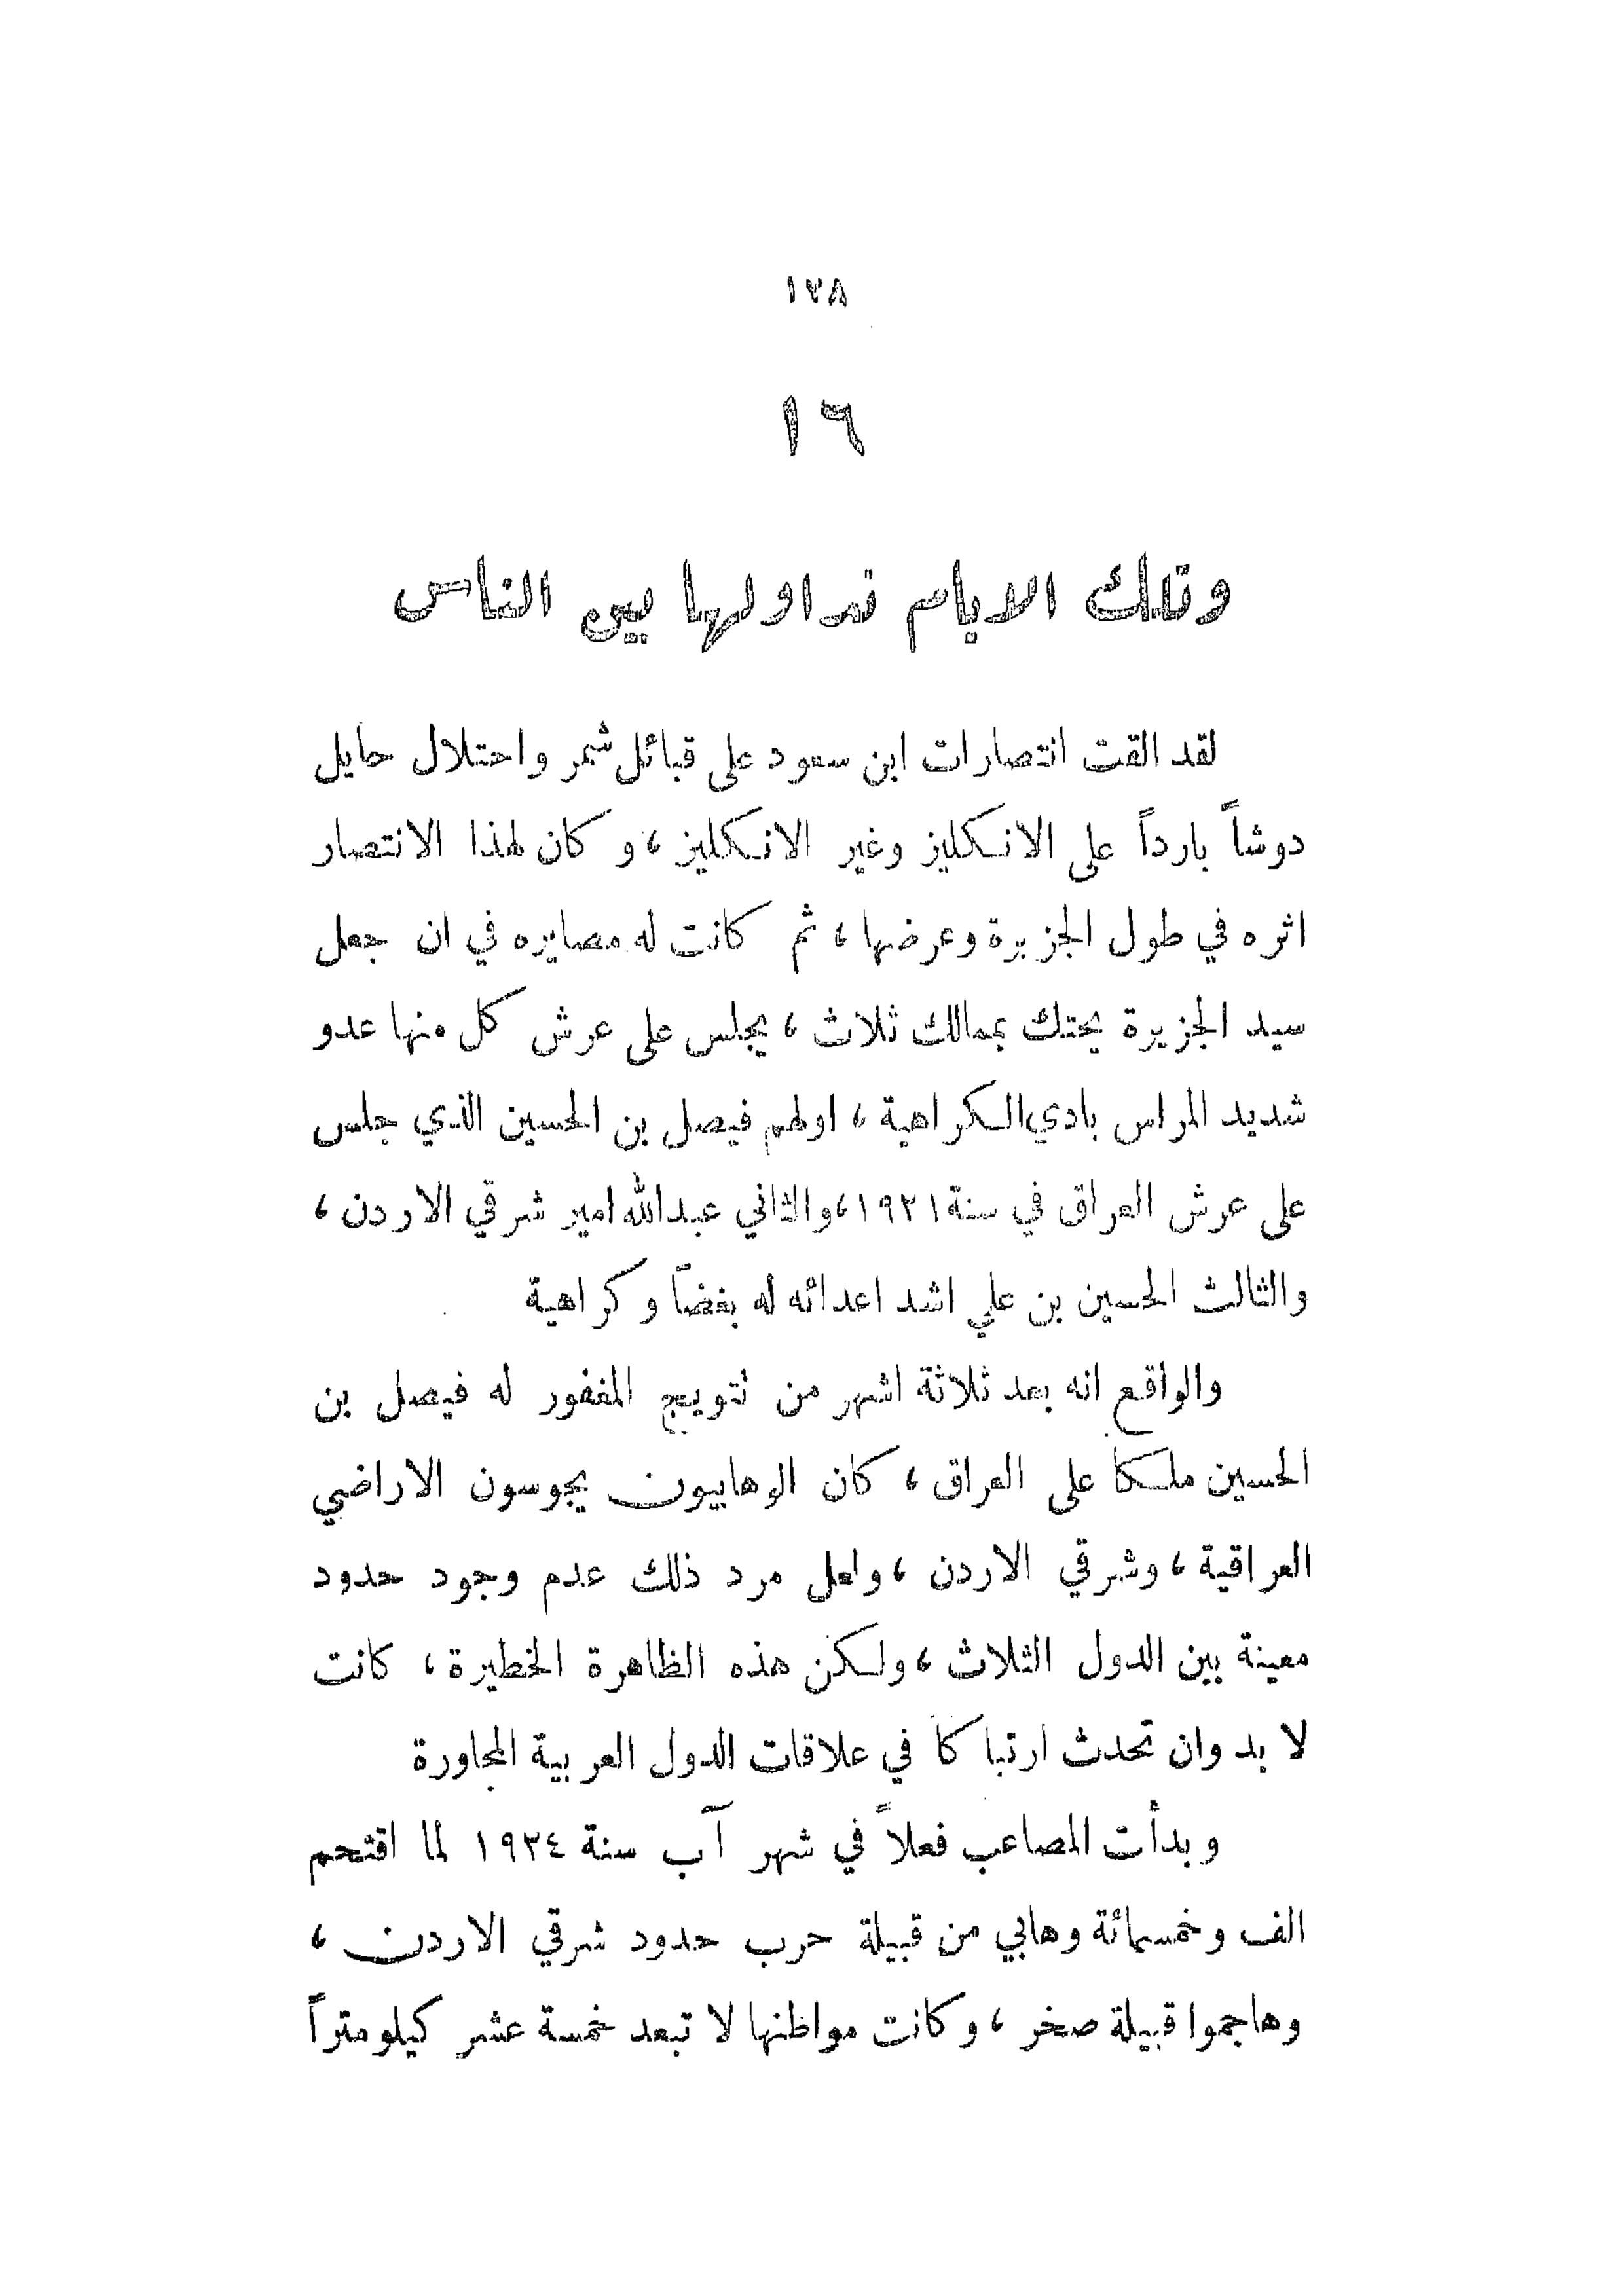 ١٢٨
١٦
وتلك الايام نداولها بين الناس
لقد القت انتصارات ابن سعود على قبائل شمر واحتلال حايل
دوشاً بارداً على الانكليز وغير الانكليز ، وكان لهذا الانتصار
اثره في طول الجزيرة وعرضها ، ثم كانت له مصايره في ان جعل
سيد الجزيرة يحتك بممالك ثلاث ، يجلس على عرش كل منها عدو
شديد المراس بادي الكراهية ، اولهم فيصل بن الحسين الذي جلس
على عرش العراق في سنة ١٩٢١ ، والثاني عبدالله امير شرقي الاردن ،
والثالث الحسين بن علي اشد اعدائه له بغضاً وكراهية
والواقع انه بعد ثلاثة اشهر من تتويج المغفور له فيصل بن
الحسين ملكا على العراق ، كان الوهابيون يجوسون الاراضي
العراقية ، وشرقي الاردن ، ولعل مرد ذلك عدم وجود حدود
معينة بين الدول الثلاث ، ولكن هذه الظاهرة الخطيرة ، كانت
لا بد وان تحدث ارتباكاً في علاقات الدول العربية المجاورة
وبدأت المصاعب فعلاً في شهر آب سنة ١٩٢٤ لما اقتحم
الف وخمسمائة وهابي من قبيلة حرب حدود شرقي الاردن ،
وهاجموا قبيلة صخر ، وكانت مواطنها لا تبعد خمسة عشر كيلومتراً